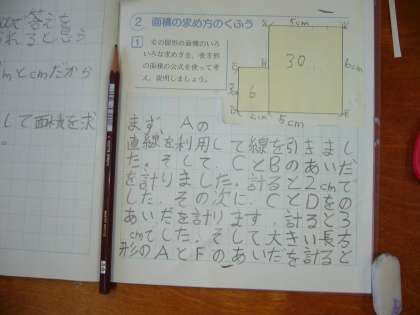 答えを
れると思う
mとcmだから
して面積を求
。
2 面積の求め方のくふう
1 左の図形の面積のいろ
いろな求め方を、長方形
の面積の公式を使って考
え、説明しましょう。
5cm
30
6cm
6
2cm
5cm
まず、Aの
直線を利用して線を引きまし
た。そして、CとBのあいだ
を計りました。計ると2cmで
した。その次に、CとDをの
あいだを計ります。計ると3
cmでした。そして大きい長方
形のAとFのあいだを計ると